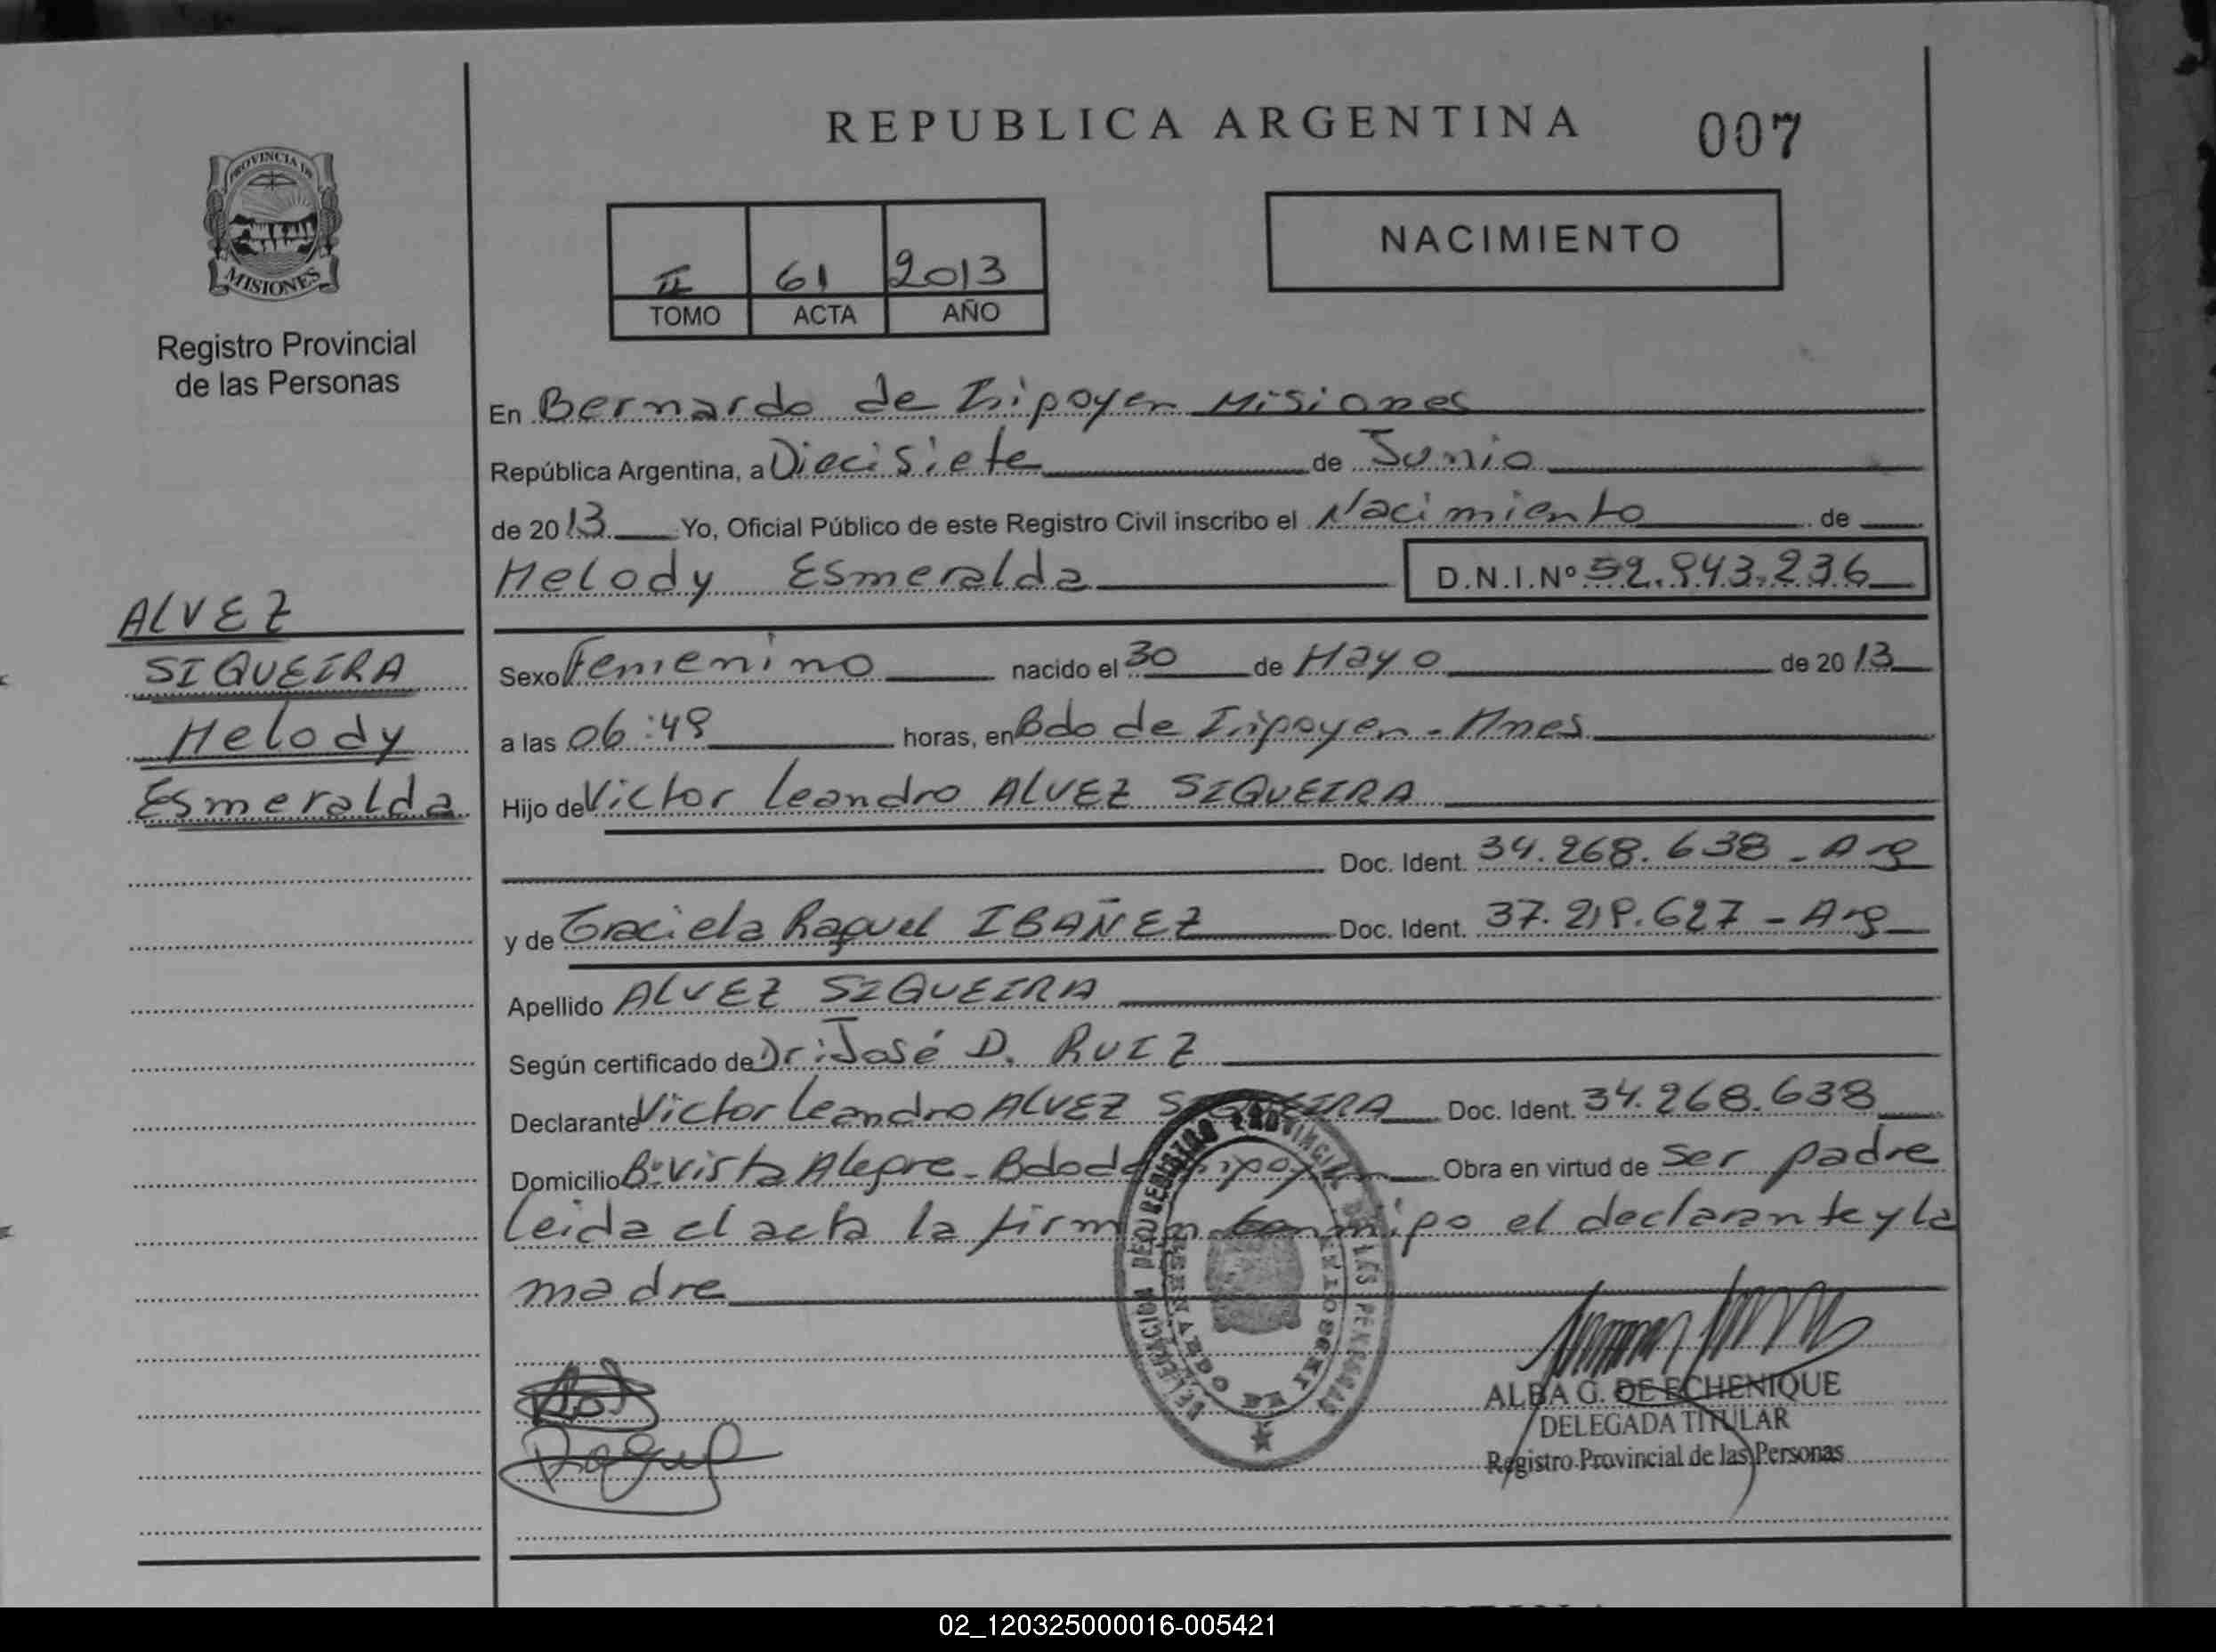 REPUBLICA ARGENTINA
007
PROVINCIA DE
MISIONES
Registro Provincial
de las Personas
II 61 2013
TOMO ACTA AÑO
NACIMIENTO
En Bernardo de Irigoyen Misiones
República Argentina, a Diecisiete de Junio
de 2013 Yo, Oficial Público de este Registro Civil inscribo el Nacimiento de
Melody Esmeralda D.N.I.Nº 52.943.236
ALVEZ
SIQUEIRA
Melody
Esmeralda
Sexo Femenino nacido el 30 de Mayo de 2013
a las 06:49 horas, en Bdo de Irigoyen - Mnes
Hijo de Victor Leandro ALVEZ SIQUEIRA
Doc. Ident. 34.268.638 - Arg
y de Graciela Raquel IBAÑEZ Doc. Ident. 37.219.627 - Arg
Apellido ALVEZ SIQUEIRA
Según certificado de Dr: José D. RUIZ
Declarante Victor Leandro ALVEZ SIQUEIRA Doc. Ident. 34.268.638
Domicilio Bº Vista Alegre - Bdo de Irigoyen Obra en virtud de ser padre
Leida el acta la firman conmigo el declarante y la
madre
REGISTRO PROVINCIAL DE LAS PERSONAS
Raquel
ALBA G. DE ECHENIQUE
DELEGADA TITULAR
Registro Provincial de las Personas
02_120325000016-005421